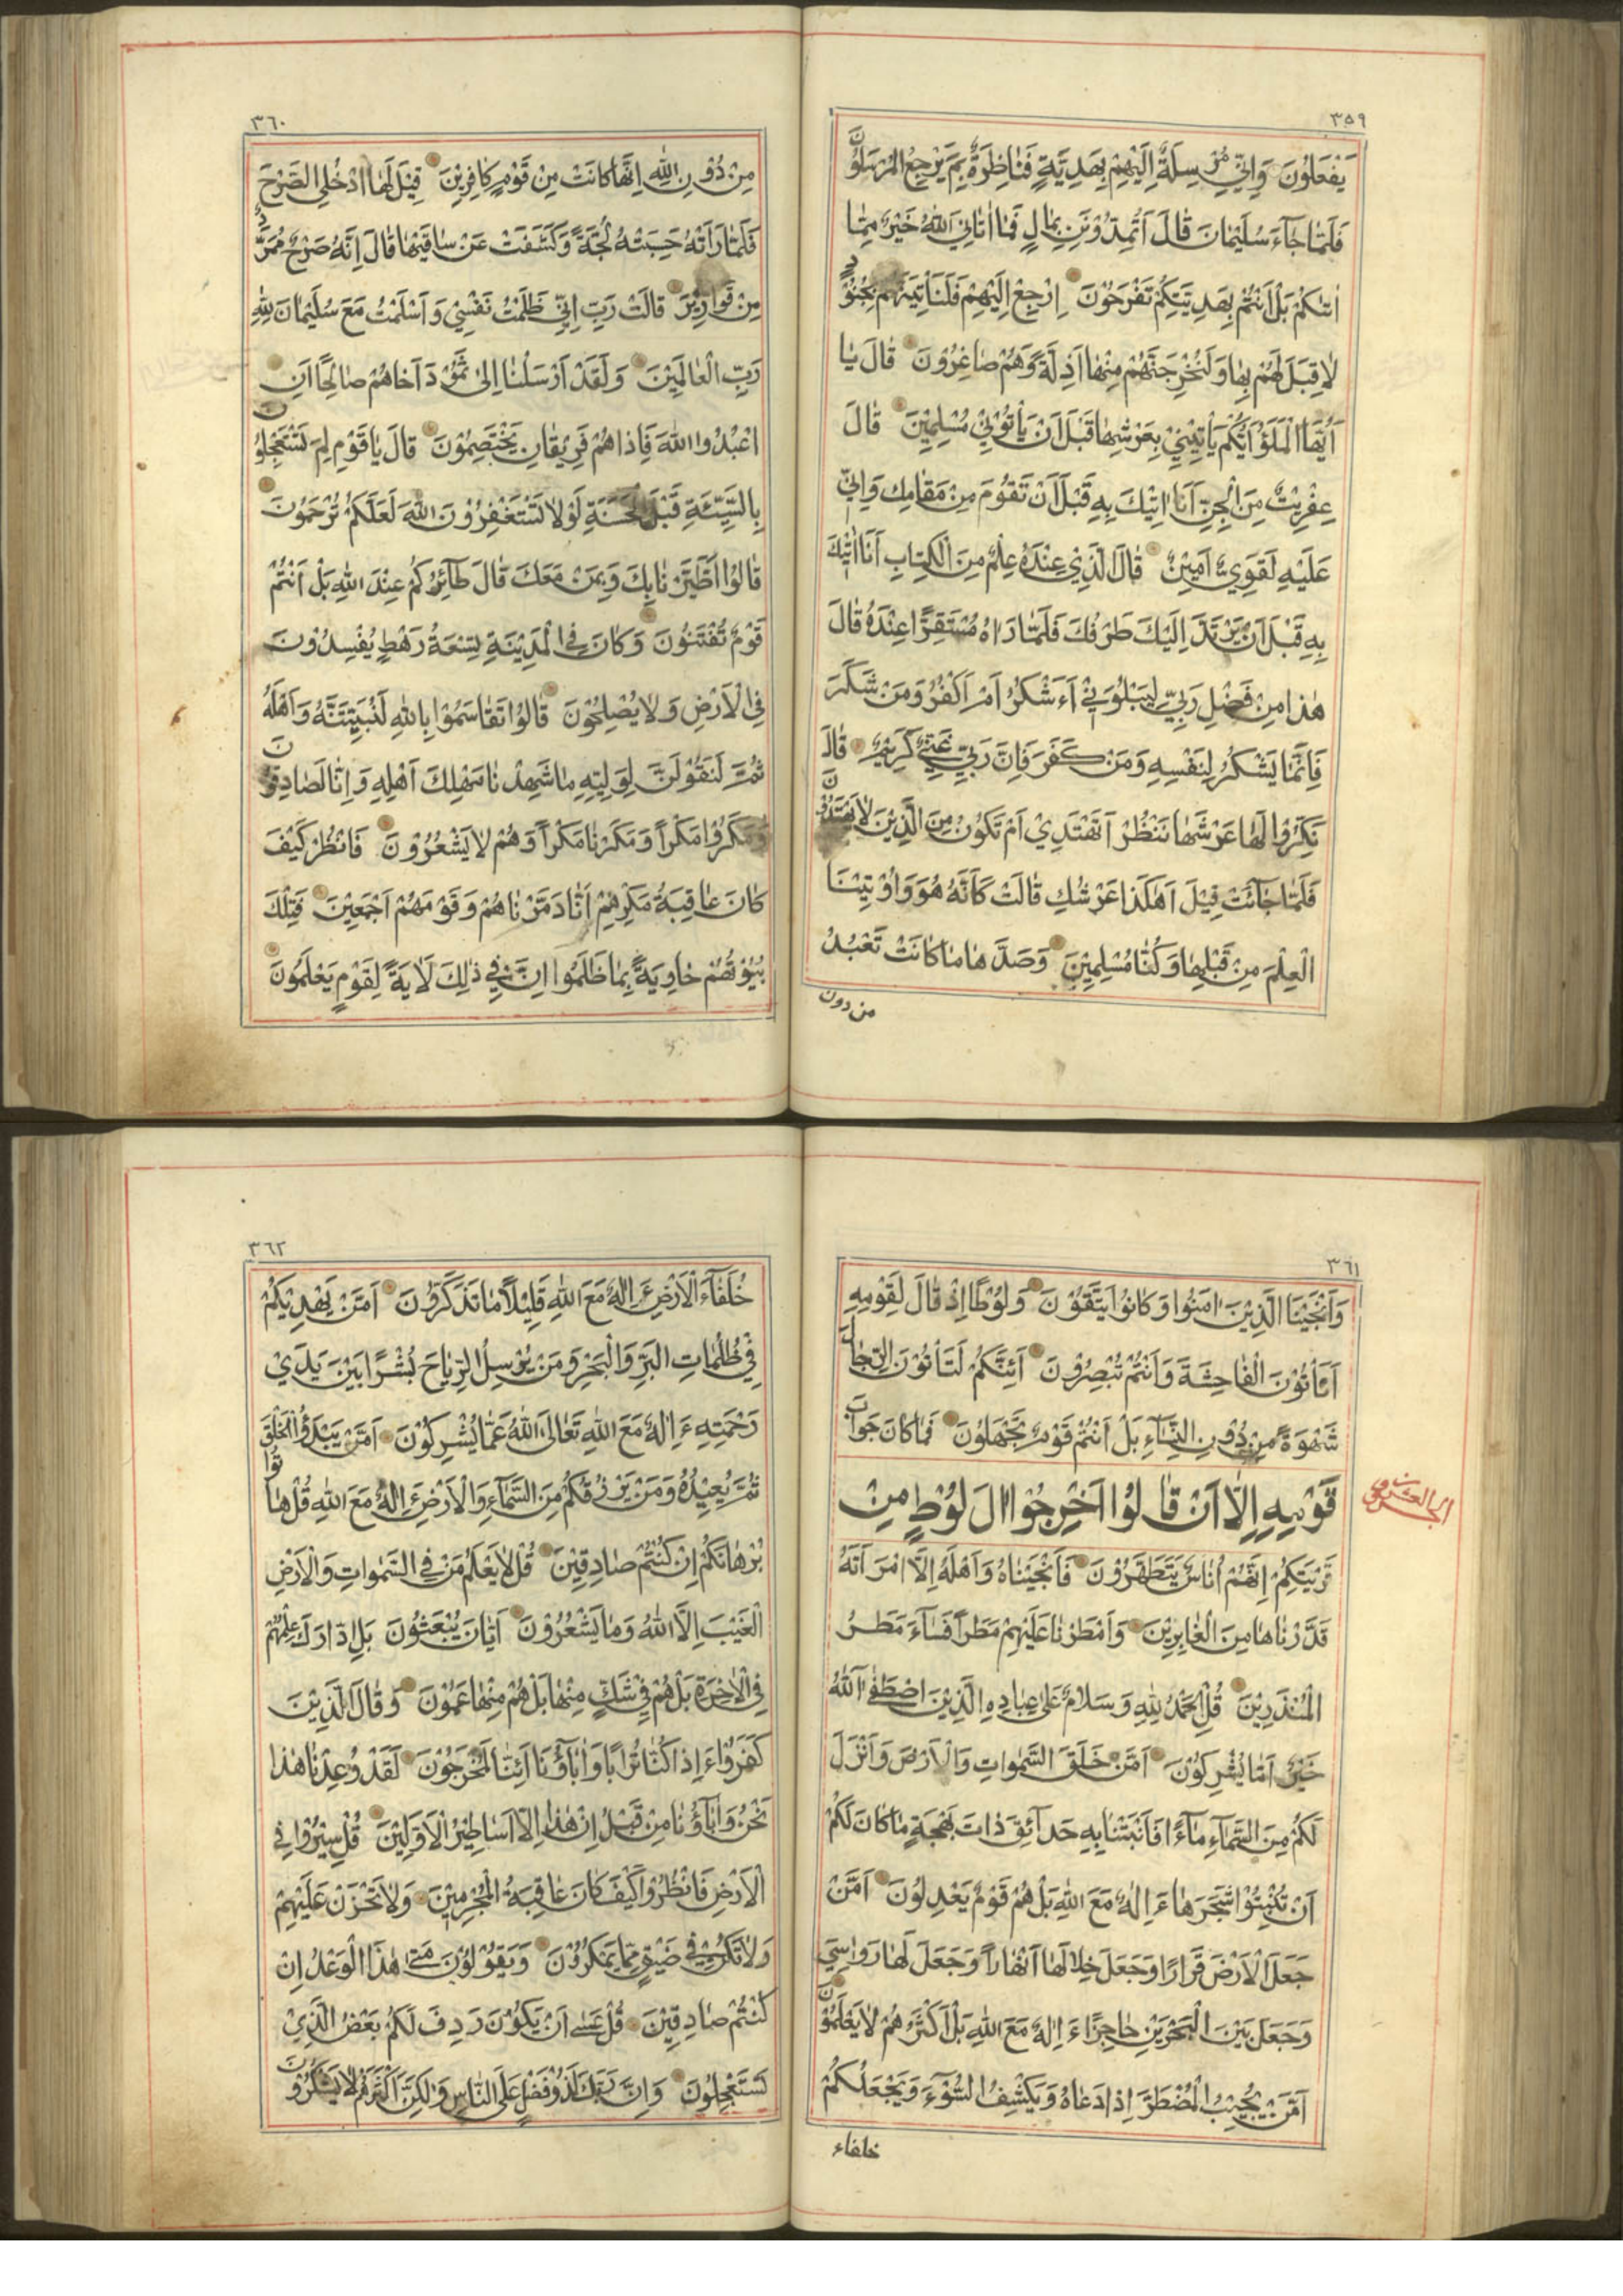 ٣٥٩
يَفْعَلُونَ وَاِنِّي مُرْسِلَةٌ اِلَيْهِمْ بِهَدِيَّةٍ فَنَاظِرَةٌ بِمَ يَرْجِعُ الْمُرْسَلُونَ
فَلَمَّا جَآءَ سُلَيْمَانَ قَالَ اَتُمِدُّوْنَنِ بِمَالٍ فَمَا اٰتَانِيَ اللّٰهُ خَيْرٌ مِمَّا
اٰتٰكُمْ بَلْ اَنْتُمْ بِهَدِيَّتِكُمْ تَفْرَحُوْنَ اِرْجِعْ اِلَيْهِمْ فَلَنَأْتِيَنَّهُمْ بِجُنُوْدٍ
لَا قِبَلَ لَهُمْ بِهَا وَلَنُخْرِجَنَّهُمْ مِنْهَا اَذِلَّةً وَهُمْ صَاغِرُوْنَ قَالَ يَا
اَيُّهَا الْمَلَؤُ اَيُّكُمْ يَأْتِيْنِيْ بِعَرْشِهَا قَبْلَ اَنْ يَأْتُوْنِيْ مُسْلِمِيْنَ قَالَ
عِفْرِيْتٌ مِنَ الْجِنِّ اَنَا اٰتِيْكَ بِهِ قَبْلَ اَنْ تَقُوْمَ مِنْ مَقَامِكَ وَاِنِّي
عَلَيْهِ لَقَوِيٌّ اَمِيْنٌ قَالَ الَّذِيْ عِنْدَهُ عِلْمٌ مِنَ الْكِتَابِ اَنَا اٰتِيْكَ
بِهِ قَبْلَ اَنْ يَرْتَدَّ اِلَيْكَ طَرْفُكَ فَلَمَّا رَاٰهُ مُسْتَقِرًّا عِنْدَهُ قَالَ
هٰذَا مِنْ فَضْلِ رَبِّيْ لِيَبْلُوَنِيْ ءَاَشْكُرُ اَمْ اَكْفُرُ وَمَنْ شَكَرَ
فَاِنَّمَا يَشْكُرُ لِنَفْسِهِ وَمَنْ كَفَرَ فَاِنَّ رَبِّيْ غَنِيٌّ كَرِيْمٌ قَالَ
نَكِّرُوْا لَهَا عَرْشَهَا نَنْظُرْ اَتَهْتَدِيْ اَمْ تَكُوْنُ مِنَ الَّذِيْنَ لَا يَهْتَدُوْنَ
فَلَمَّا جَآئَتْ قِيْلَ اَهٰكَذَا عَرْشُكِ قَالَتْ كَاَنَّهُ هُوَ وَاُوْتِيْنَا
الْعِلْمَ مِنْ قَبْلِهَا وَكُنَّا مُسْلِمِيْنَ وَصَدَّهَا مَا كَانَتْ تَعْبُدُ
من دون
٣٦٠
مِنْ دُوْنِ اللّٰهِ اِنَّهَا كَانَتْ مِنْ قَوْمٍ كَافِرِيْنَ قِيْلَ لَهَا ادْخُلِي الصَّرْحَ
فَلَمَّا رَاَتْهُ حَسِبَتْهُ لُجَّةً وَكَشَفَتْ عَنْ سَاقَيْهَا قَالَ اِنَّهُ صَرْحٌ مُمَرَّدٌ
مِنْ قَوَارِيْرَ قَالَتْ رَبِّ اِنِّيْ ظَلَمْتُ نَفْسِيْ وَاَسْلَمْتُ مَعَ سُلَيْمَانَ لِلّٰهِ
رَبِّ الْعَالَمِيْنَ وَلَقَدْ اَرْسَلْنَا اِلٰى ثَمُوْدَ اَخَاهُمْ صَالِحًا اَنِ
اعْبُدُوا اللّٰهَ فَاِذَا هُمْ فَرِيْقَانِ يَخْتَصِمُوْنَ قَالَ يَا قَوْمِ لِمَ تَسْتَعْجِلُوْنَ
بِالسَّيِّئَةِ قَبْلَ الْحَسَنَةِ لَوْلَا تَسْتَغْفِرُوْنَ اللّٰهَ لَعَلَّكُمْ تُرْحَمُوْنَ
قَالُوا اطَّيَّرْنَا بِكَ وَبِمَنْ مَعَكَ قَالَ طَآئِرُكُمْ عِنْدَ اللّٰهِ بَلْ اَنْتُمْ
قَوْمٌ تُفْتَنُوْنَ وَكَانَ فِي الْمَدِيْنَةِ تِسْعَةُ رَهْطٍ يُفْسِدُوْنَ
فِي الْاَرْضِ وَلَا يُصْلِحُوْنَ قَالُوْا تَقَاسَمُوْا بِاللّٰهِ لَنُبَيِّتَنَّهُ وَاَهْلَهُ
ثُمَّ لَنَقُوْلَنَّ لِوَلِيِّهِ مَا شَهِدْنَا مَهْلِكَ اَهْلِهِ وَاِنَّا لَصَادِقُوْنَ
وَمَكَرُوْا مَكْرًا وَمَكَرْنَا مَكْرًا وَهُمْ لَا يَشْعُرُوْنَ فَانْظُرْ كَيْفَ
كَانَ عَاقِبَةُ مَكْرِهِمْ اَنَّا دَمَّرْنَاهُمْ وَقَوْمَهُمْ اَجْمَعِيْنَ فَتِلْكَ
بُيُوْتُهُمْ خَاوِيَةً بِمَا ظَلَمُوْا اِنَّ فِيْ ذٰلِكَ لَاٰيَةً لِقَوْمٍ يَعْلَمُوْنَ
٣٦١
وَاَنْجَيْنَا الَّذِيْنَ اٰمَنُوْا وَكَانُوْا يَتَّقُوْنَ وَلُوْطًا اِذْ قَالَ لِقَوْمِهِ
اَتَأْتُوْنَ الْفَاحِشَةَ وَاَنْتُمْ تُبْصِرُوْنَ اَئِنَّكُمْ لَتَأْتُوْنَ الرِّجَالَ
شَهْوَةً مِنْ دُوْنِ النِّسَآءِ بَلْ اَنْتُمْ قَوْمٌ تَجْهَلُوْنَ فَمَا كَانَ جَوَابَ
قَوْمِهِ اِلَّا اَنْ قَالُوْا اَخْرِجُوْا اٰلَ لُوْطٍ مِنْ
قَرْيَتِكُمْ اِنَّهُمْ اُنَاسٌ يَتَطَهَّرُوْنَ فَاَنْجَيْنَاهُ وَاَهْلَهُ اِلَّا امْرَاَتَهُ
قَدَّرْنَاهَا مِنَ الْغَابِرِيْنَ وَاَمْطَرْنَا عَلَيْهِمْ مَطَرًا فَسَآءَ مَطَرُ
الْمُنْذَرِيْنَ قُلِ الْحَمْدُ لِلّٰهِ وَسَلَامٌ عَلٰى عِبَادِهِ الَّذِيْنَ اصْطَفٰى آللّٰهُ
خَيْرٌ اَمَّا يُشْرِكُوْنَ اَمَّنْ خَلَقَ السَّمٰوَاتِ وَالْاَرْضَ وَاَنْزَلَ
لَكُمْ مِنَ السَّمَآءِ مَآءً فَاَنْبَتْنَا بِهِ حَدَآئِقَ ذَاتَ بَهْجَةٍ مَا كَانَ لَكُمْ
اَنْ تُنْبِتُوْا شَجَرَهَا ءَاِلٰهٌ مَعَ اللّٰهِ بَلْ هُمْ قَوْمٌ يَعْدِلُوْنَ اَمَّنْ
جَعَلَ الْاَرْضَ قَرَارًا وَجَعَلَ خِلَالَهَا اَنْهَارًا وَجَعَلَ لَهَا رَوَاسِيَ
وَجَعَلَ بَيْنَ الْبَحْرَيْنِ حَاجِزًا ءَاِلٰهٌ مَعَ اللّٰهِ بَلْ اَكْثَرُهُمْ لَا يَعْلَمُوْنَ
اَمَّنْ يُجِيْبُ الْمُضْطَرَّ اِذَا دَعَاهُ وَيَكْشِفُ السُّوْٓءَ وَيَجْعَلُكُمْ
خلفاء
٣٦٢
خُلَفَآءَ الْاَرْضِ ءَاِلٰهٌ مَعَ اللّٰهِ قَلِيْلًا مَا تَذَكَّرُوْنَ اَمَّنْ يَهْدِيْكُمْ
فِيْ ظُلُمَاتِ الْبَرِّ وَالْبَحْرِ وَمَنْ يُرْسِلُ الرِّيَاحَ بُشْرًا بَيْنَ يَدَيْ
رَحْمَتِهِ ءَاِلٰهٌ مَعَ اللّٰهِ تَعَالَى اللّٰهُ عَمَّا يُشْرِكُوْنَ اَمَّنْ يَبْدَؤُا الْخَلْقَ
ثُمَّ يُعِيْدُهُ وَمَنْ يَرْزُقُكُمْ مِنَ السَّمَآءِ وَالْاَرْضِ ءَاِلٰهٌ مَعَ اللّٰهِ قُلْ هَاتُوْا
بُرْهَانَكُمْ اِنْ كُنْتُمْ صَادِقِيْنَ قُلْ لَا يَعْلَمُ مَنْ فِي السَّمٰوَاتِ وَالْاَرْضِ
الْغَيْبَ اِلَّا اللّٰهُ وَمَا يَشْعُرُوْنَ اَيَّانَ يُبْعَثُوْنَ بَلِ ادَّارَكَ عِلْمُهُمْ
فِي الْاٰخِرَةِ بَلْ هُمْ فِيْ شَكٍّ مِنْهَا بَلْ هُمْ مِنْهَا عَمُوْنَ وَقَالَ الَّذِيْنَ
كَفَرُوْا ءَاِذَا كُنَّا تُرَابًا وَاٰبَآؤُنَا اَئِنَّا لَمُخْرَجُوْنَ لَقَدْ وُعِدْنَا هٰذَا
نَحْنُ وَاٰبَآؤُنَا مِنْ قَبْلُ اِنْ هٰذَا اِلَّا اَسَاطِيْرُ الْاَوَّلِيْنَ قُلْ سِيْرُوْا فِي
الْاَرْضِ فَانْظُرُوْا كَيْفَ كَانَ عَاقِبَةُ الْمُجْرِمِيْنَ وَلَا تَحْزَنْ عَلَيْهِمْ
وَلَا تَكُنْ فِيْ ضَيْقٍ مِمَّا يَمْكُرُوْنَ وَيَقُوْلُوْنَ مَتٰى هٰذَا الْوَعْدُ اِنْ
كُنْتُمْ صَادِقِيْنَ قُلْ عَسٰى اَنْ يَكُوْنَ رَدِفَ لَكُمْ بَعْضُ الَّذِيْ
تَسْتَعْجِلُوْنَ وَاِنَّ رَبَّكَ لَذُوْ فَضْلٍ عَلَى النَّاسِ وَلٰكِنَّ اَكْثَرَهُمْ لَا يَشْكُرُوْنَ